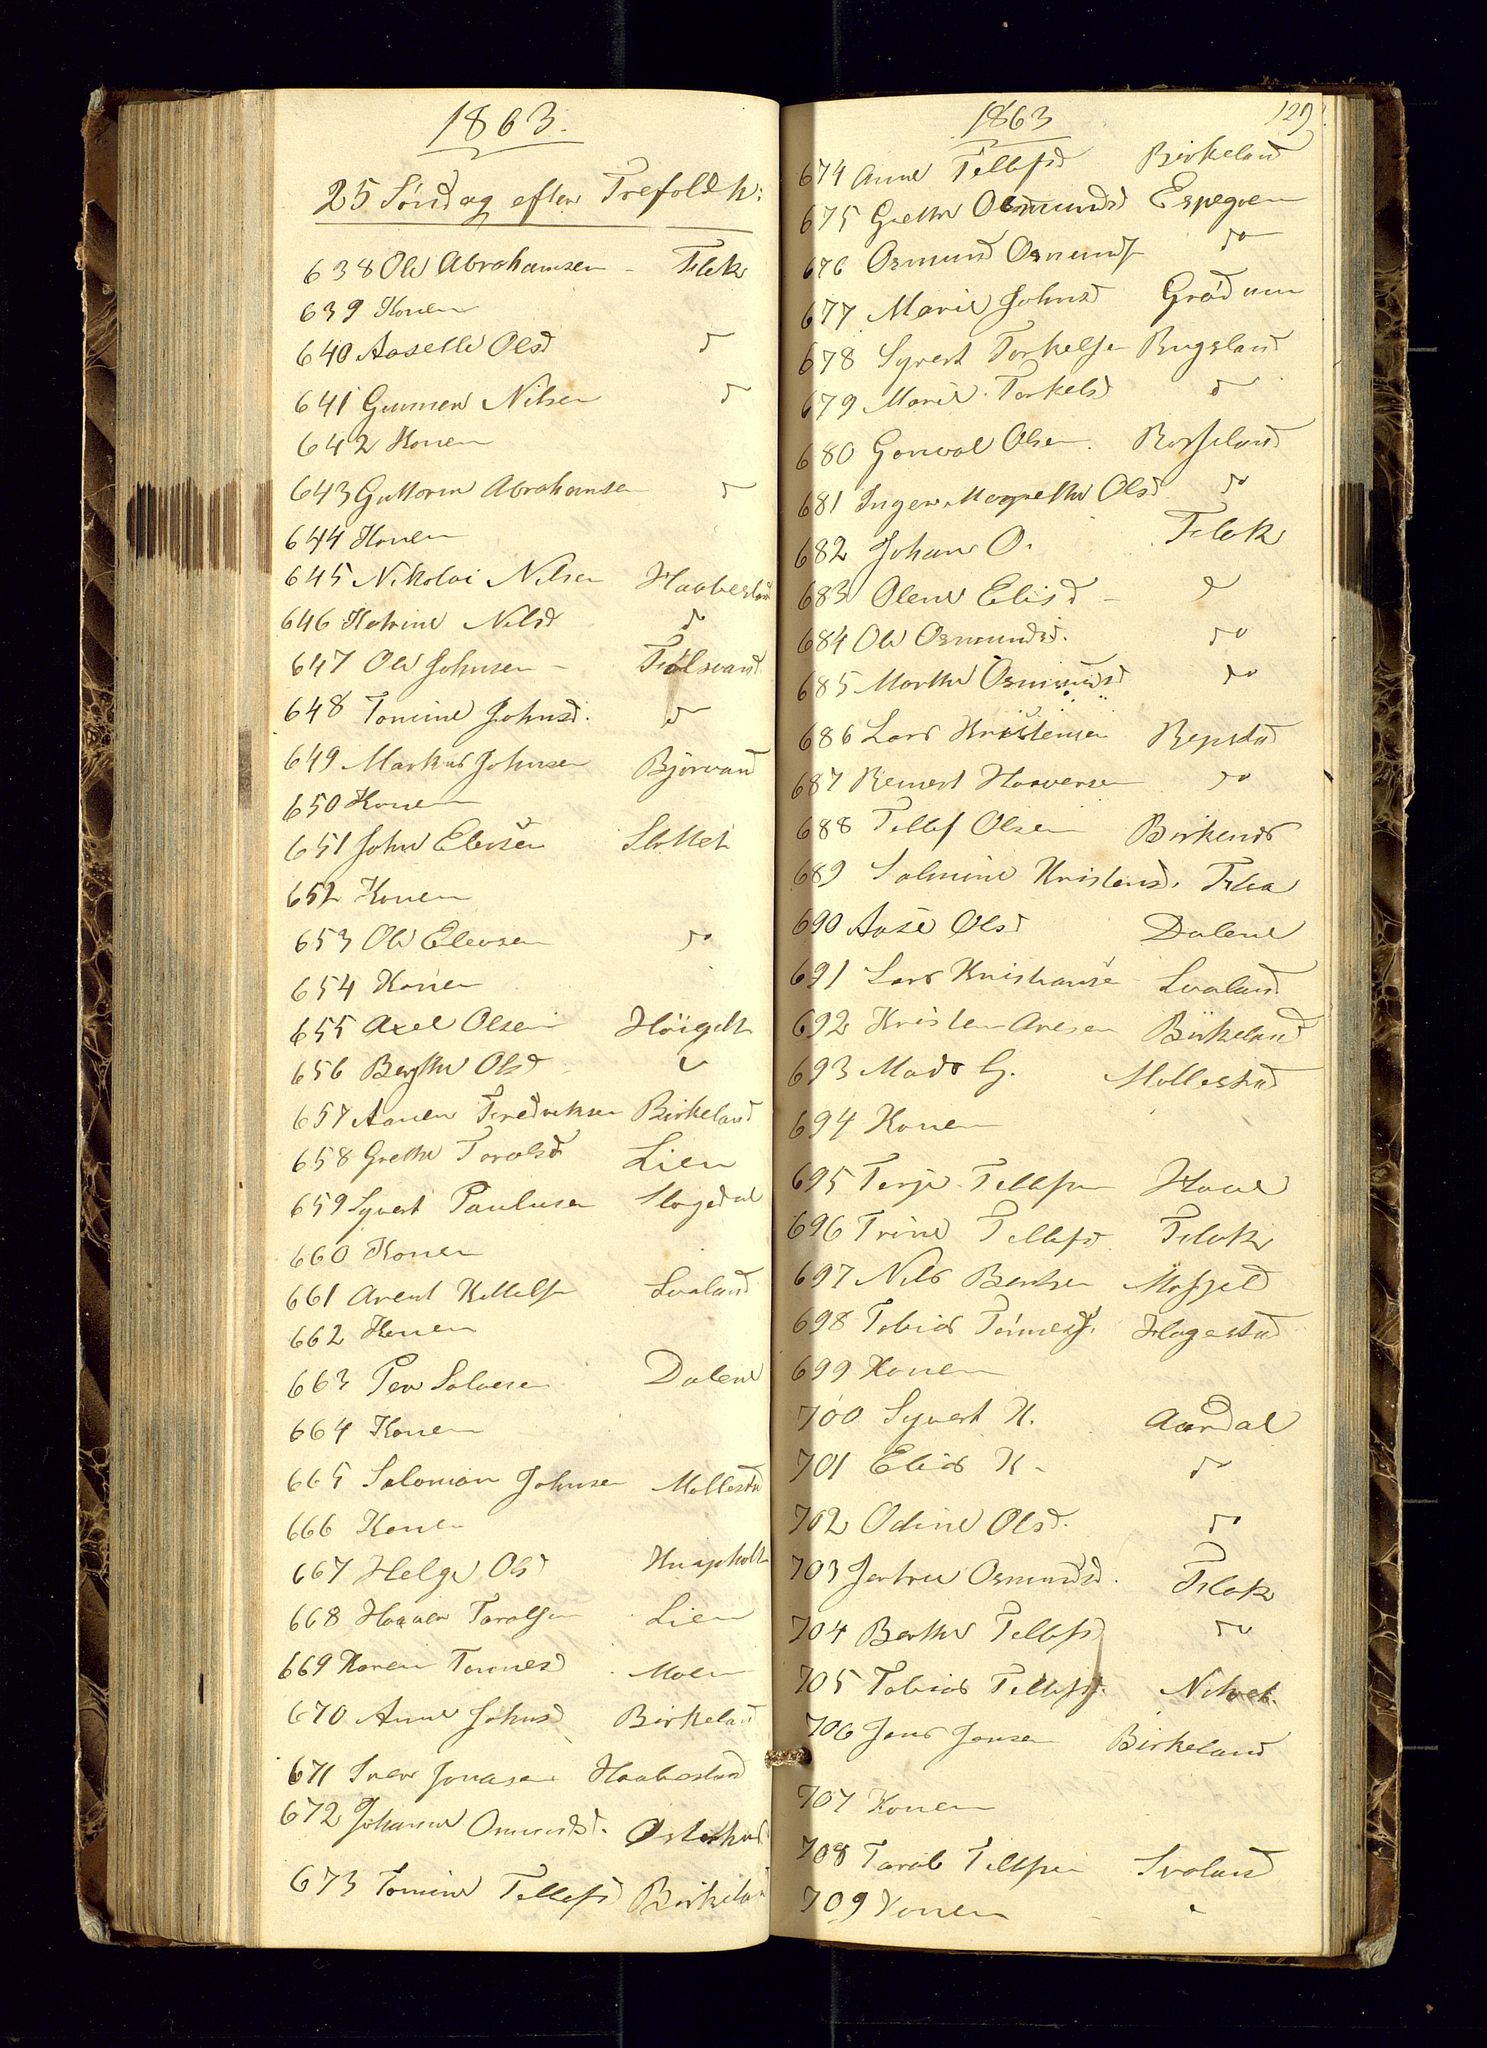 1863.
25 Söndag efter Trefoldh:
638 Ole Abrahamsen - Flak
639 Konen
640 Aaselle Olsd do
641 Gunner Nilsen do
642 Konen
643 Guttorm Abrahamsen do
644 Konen
645 Nikolai Nilsen Haabesland
646 Katrine Nilsd do
647 Ole Johnsen - Fidlsvand
648 Tomine Johnsd. do
649 Markus Johnsen Björvand
650 Konen
651 John Elevsen Slottet
652 Konen
653 Ole Elevsen do
654 Konen
655 Axel Olsen Höigilt
656 Berthe Olsd
657 Aanen Fredriksen Birkeland
658 Grethe Taralsd Lien
659 Syvert Paulusen Slogedal
660 Konen
661 Arent Kittelsen Svaland
662 Konen
663 Per Salvesen Dalene
664 Konen
665 Salomon Johnsen Mollestad
666 Konen
667 Helge Ols Knapholt
668 Haaver Taralsen Lien
669 Karen Tomesd Moen
670 Anne Johnsd Birkeland
671 Sven Jonasen Haabesland
672 Johanne Omundsd. Osterhus
673 Tomine Tellefsd Birkeland
1863 129.
674 Anne Tellefsd Birkeland
675 Grethe Osmundsd Espegren
676 Osmund Osmunds do
677 Marie Johnsd Grödum
678 Syvert Torkelsen Rugsland
679 Marie Torkelsd do
680 Gonval Olsen Rosseland
681 Inger Margrethe Olsd do
682 Johan O. Flak
683 Olene Elisd - do
684 Ole Osmundsd. do
685 Marthe Osmundsd do
686 Lars Kristensen Repstad
687 Reinert Haaversen do
688 Tellef Olsen Birkenes
689 Salmine Kristensd. Flaa
690 Aase Olsd Dalene
691 Lars Kristianse Svaland
692 Kristen Aresen Birkeland
693 Mads G. Mollestad
694 Konen
695 Terje Tellefsen Have
696 Trine Tellefsd Flak
697 Nils Bentsen Mosfjeld
698 Tobias Tönnesf. Hagestad
699 Konen
700 Syvert K. Aardal
701 Elias K - do
702 Odine Olsd. do
703 Jertrue Osmundsd. Flak
704 Berthe Tellefsd do
705 Tobias Tellefs.
706 Jens Jensen Birkeland
707 Konen
708 Taral Tellefsen Svaland
709 Konen